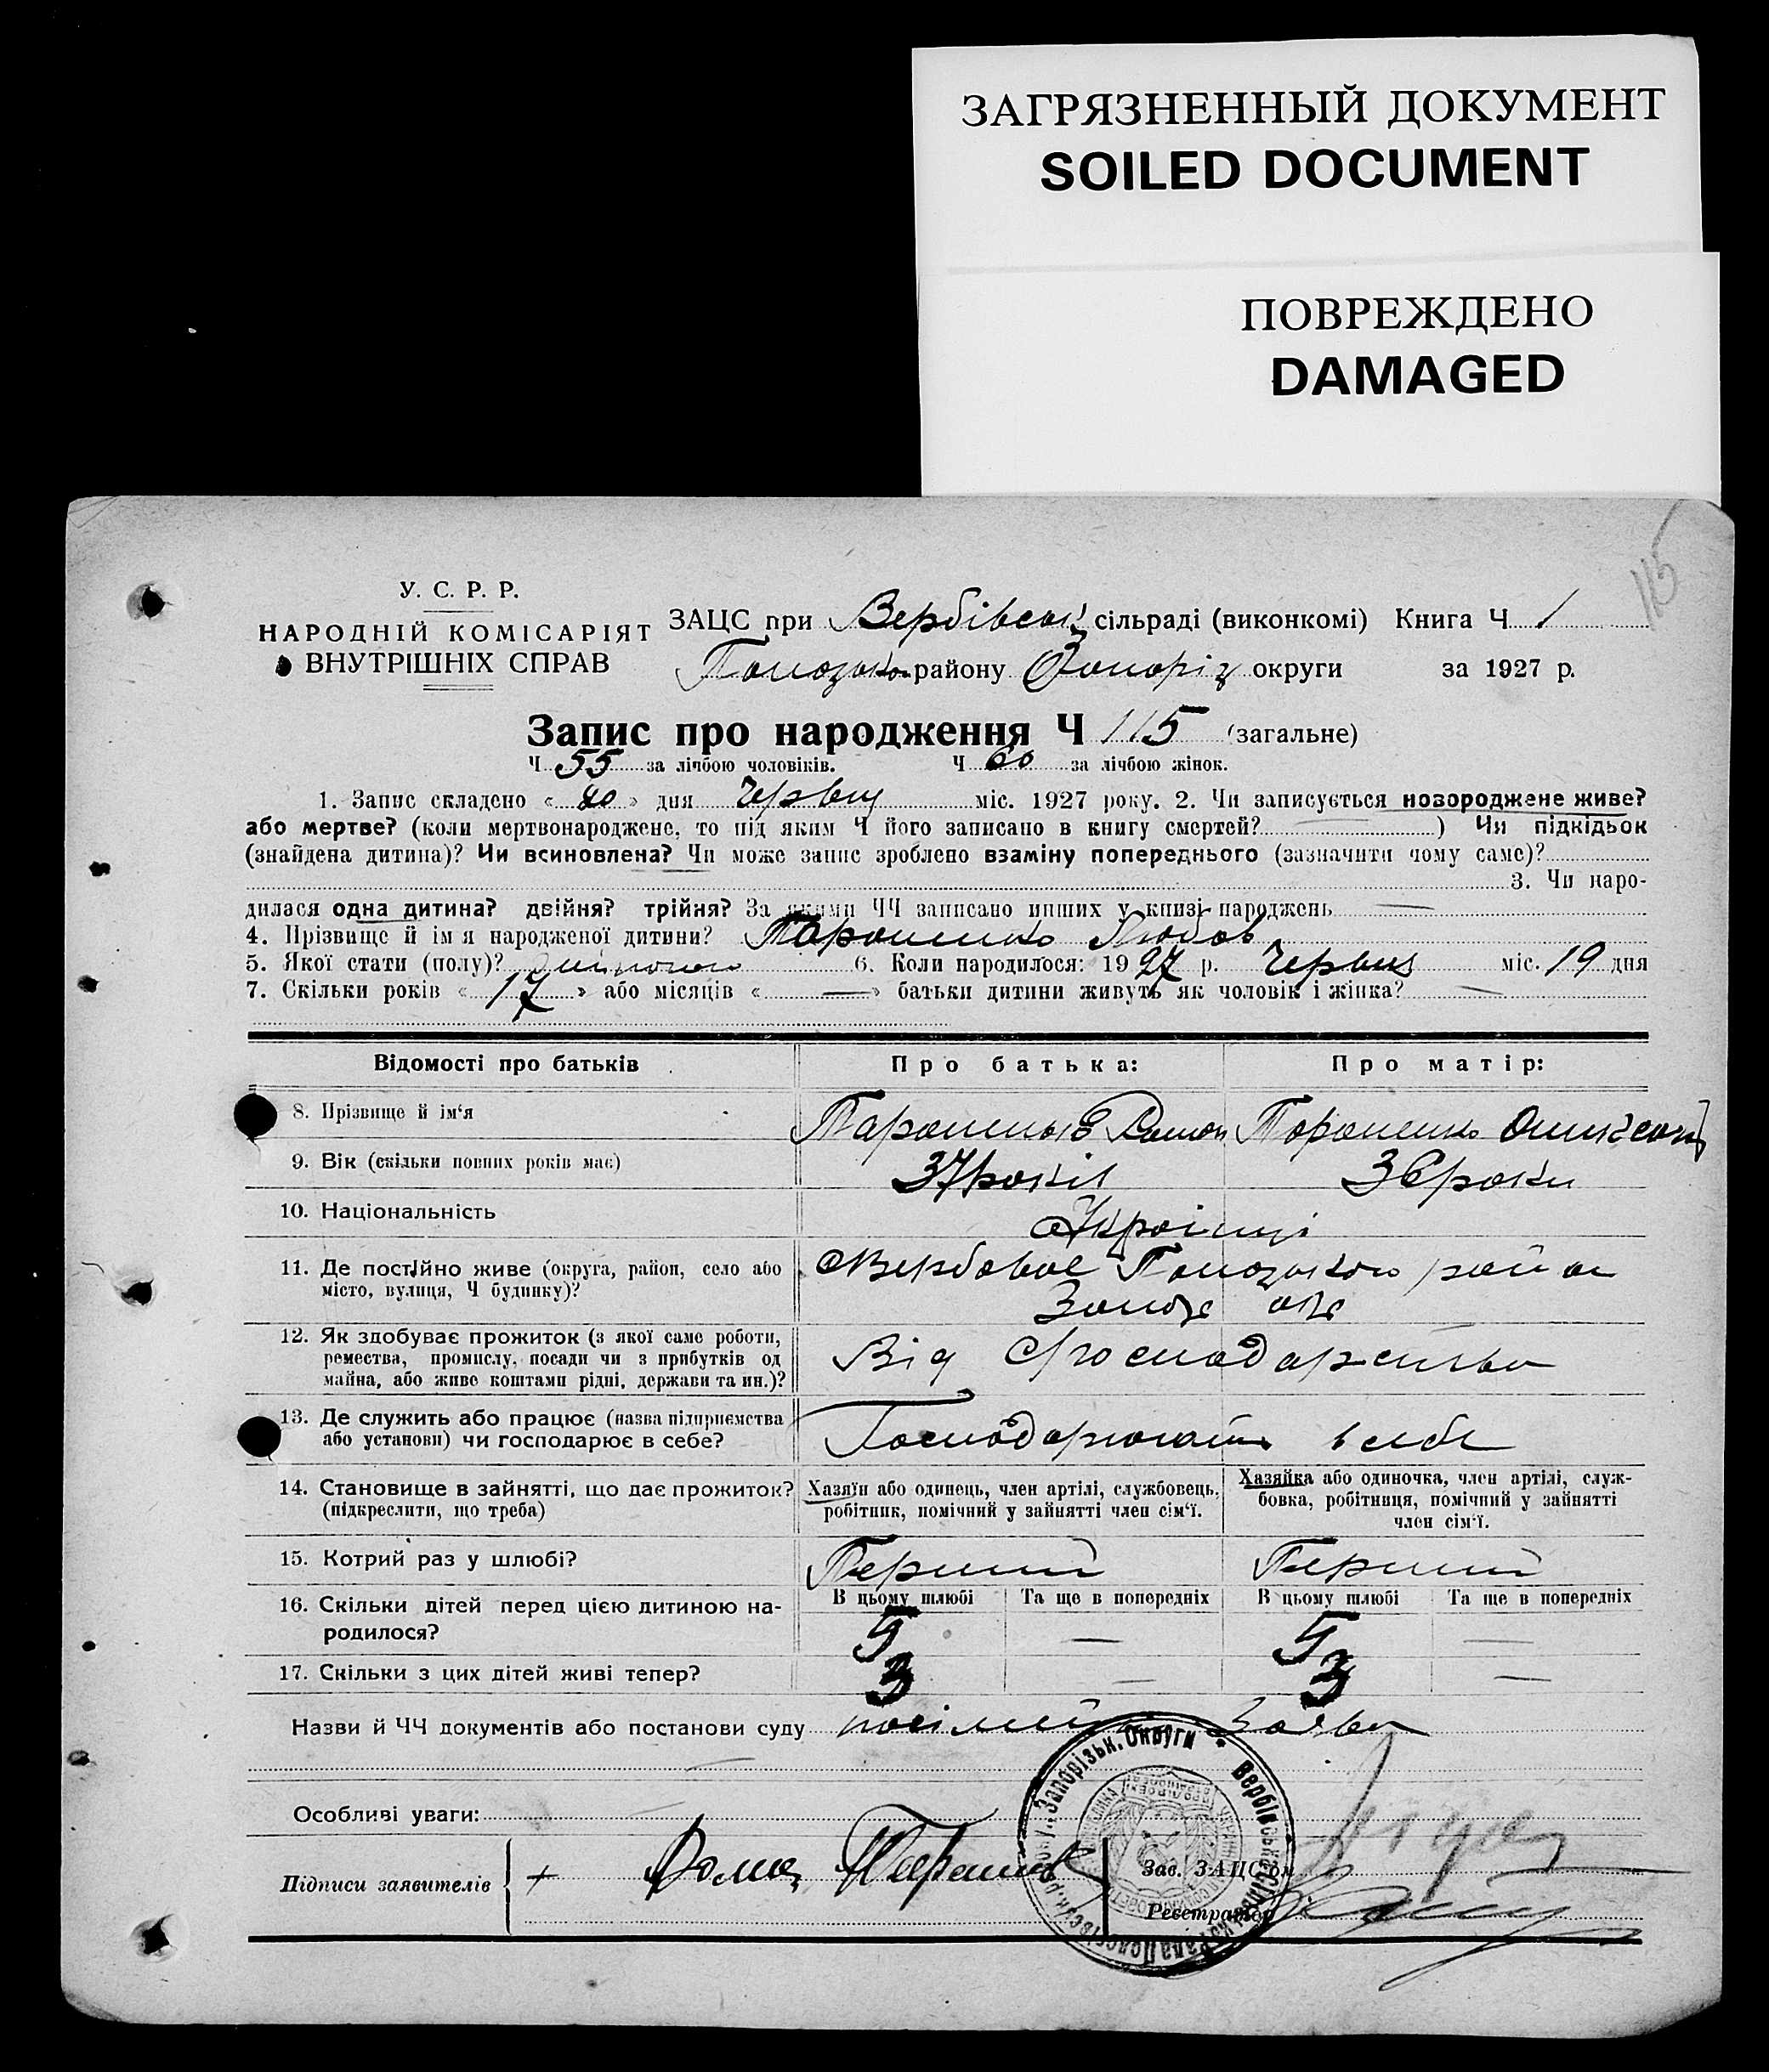 ЗАГРЯЗНЕННЫЙ ДОКУМЕНТ
SOILED DOCUMENT
ПОВРЕЖДЕНО
DAMAGED
115
У. С. Р. Р.
НАРОДНІЙ КОМІСАРІЯТ
ВНУТРІШНІХ СПРАВ
ЗАЦС при Вербівськ сільраді (виконкомі) Книга Ч 1
району Запоріз округи за 1927 р.
Запис про народження Ч 115 (загальне)
Ч 55 за лічбою чоловіків. Ч 60 за лічбою жінок.
1. Запис складено « 20 » дня Червця міс. 1927 року. 2. Чи записується новороджене живе?
або мертве? (коли мертвонароджене, то під яким Ч його записано в книгу смертей? — ) Чи підкідьок
(знайдена дитина)? Чи всиновлена? Чи може запис зроблено взаміну попереднього (зазначити чому саме)?
3. Чи наро-
дилася одна дитина? двійня? трійня? За якими ЧЧ записано инших у книзі народжень —
4. Прізвище й ім я народженої дитини? Тараненко Любов
5. Якої стати (полу)? 6. Коли народилося: 1927 р. Червця міс. 19 дня
7. Скільки років « 17 » або місяців « — » батьки дитини живуть як чоловік і жінка? —
Відомості про батьків Про батька: Про матір:
8. Прізвище й ім'я Тараненко Роман Тараненко
9. Вік (скільки повних років має) 37 років 36 роки
10. Національність Українці
11. Де постійно живе (округа, район, село або
місто, вулиця, Ч будинку)?
Вербове району
12. Як здобуває прожиток (з якої саме роботи,
ремества, промислу, посади чи з прибутків од
майна, або живе коштами рідні, держави та ин.)?
Від Господарства
13. Де служить або працює (назва підприємства
або установи) чи господарює в себе?
Господарюють в себе
14. Становище в зайнятті, що дає прожиток?
(підкреслити, що треба)
Хазяїн або одинець, член артілі, службовець,
робітник, помічний у зайнятті член сім'ї.
Хазяйка або одиночка, член артілі, служ-
бовка, робітниця, помічний у зайнятті
член сім'ї.
15. Котрий раз у шлюбі? Перший Перший
В цьому шлюбі Та ще в попередніх В цьому шлюбі Та ще в попередніх
16. Скільки дітей перед цією дитиною на-
родилося?
5 — 5 —
17. Скільки з цих дітей живі тепер? 3 — 3 —
Назви й ЧЧ документів або постанови суду Заява
Особливі уваги:
Підписи заявителів + Роман Таранен
Зав. ЗАЦС'ом
Реєстратор
Запорізьк. Округи * Вербівська Сільська Рада